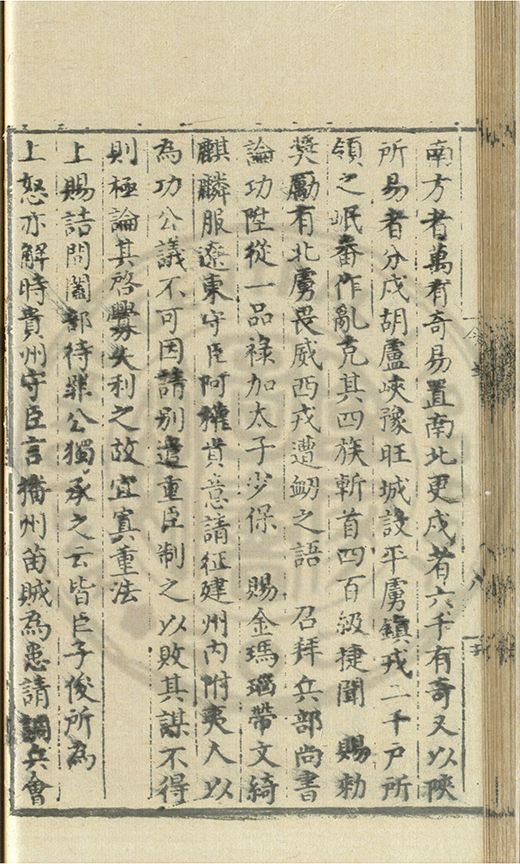 南方者萬有奇易置南北更戍者六千有奇又以陝
所易者分戍胡盧峽豫旺城設平虜鎮戎二千戶所
領之岷番作亂克其四族斬首四百級捷聞　賜勅
奬勵有北虜畏威西戎遭衂之語　召拜兵部尚書
論功陞從一品祿加太子少保　賜金瑪瑙帶文綺
麒麟服遼東守臣阿權貴意請征建州內附夷人以
為功公議不可因請別遣重臣制之以敗其謀不得
則極論其啓釁失利之故宜寘重法
上賜詰問閣部待罪公獨承之云皆臣子俊所為
上怒亦解時貴州守臣言播州苗賊為患請調兵會